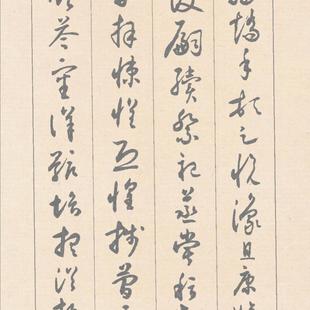 矯手頓足悅豫且康嫡
後嗣續祭祀蒸嘗稽
再拜悚懼恐惶簡
顧答審詳骸垢想浴執